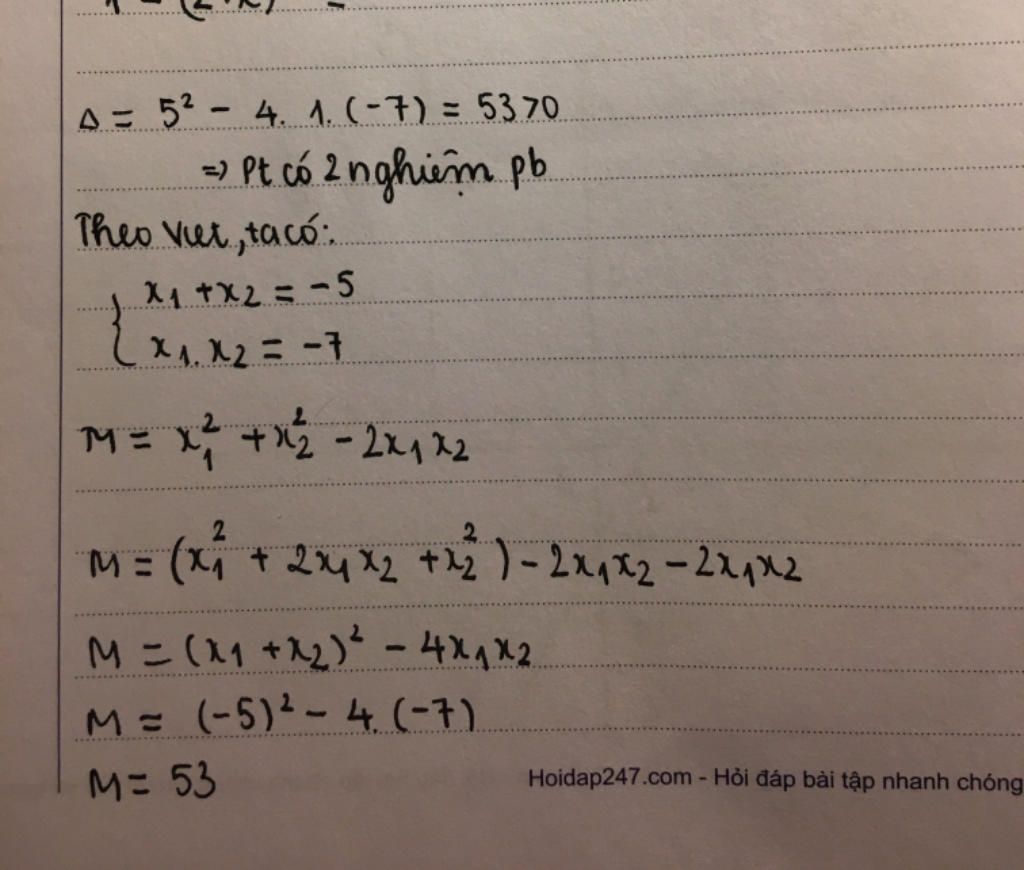 Δ = 5² - 4. 1. (-7) = 53 > 0
=> Pt có 2 nghiệm pb
Theo Viet, ta có:
x₁ + x₂ = -5
x₁. x₂ = -7
M = x₁² + x₂² - 2x₁x₂
M = (x₁² + 2x₁x₂ + x₂²) - 2x₁x₂ - 2x₁x₂
M = (x₁ + x₂)² - 4x₁x₂
M = (-5)² - 4. (-7)
M = 53
Hoidap247.com - Hỏi đáp bài tập nhanh chóng